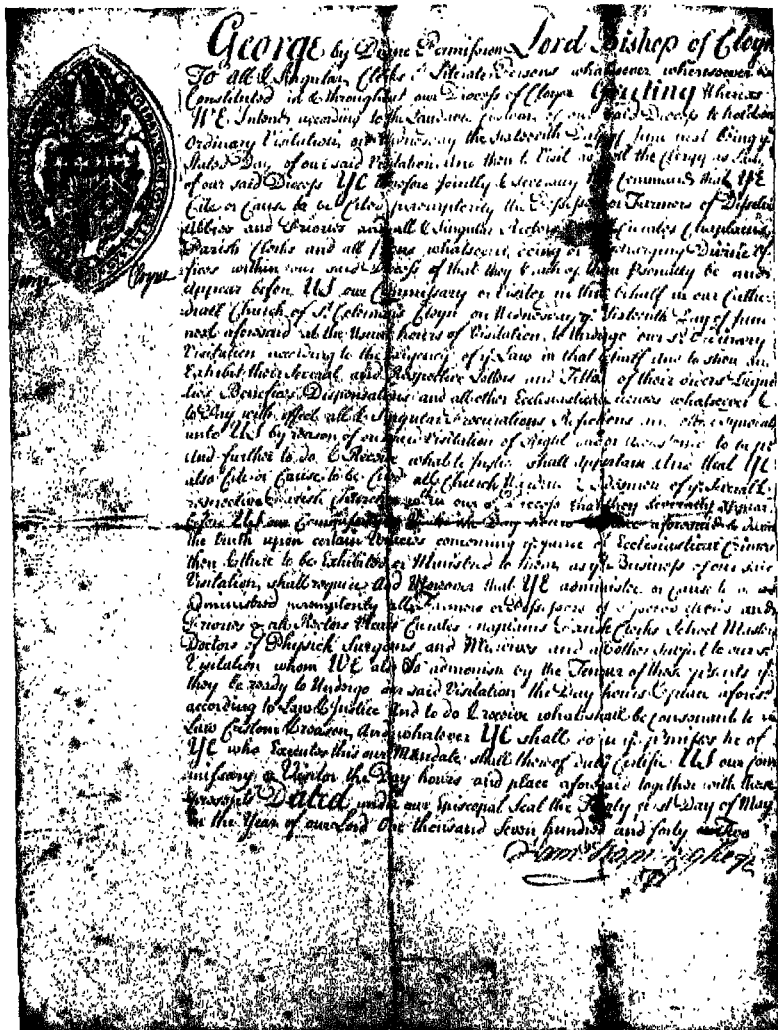 George by Divine Permission Lord Bishop of Cloyn
To all & Singular Clerks & Literate Persons whatsoever wheresoever
Constituted in & throughout our Diocess of Cloyne Greeting Whereas
WE Intend according to the Laudable Custom of our said Diocess to hold our
Ordinary Visitation, on Wednesday the sixteenth Day of June next being ye
Stated Day of our said Visitation And then to Visit as well the Clergy as Laity
of our said Diocess YE therefore jointly & severally Command that YE
Cite or Cause to be Cited peremptorily the Possessors or Farmors of Dissolved
Abbies and Priories and all & Singular Rectors Curates Chaplains
Parish Clerks and all Persons whatsoever, being or Divine Of-
fices within our said Diocess of that they & each of them Personally be and
appear before US our Commissary or Visitor in this behalf in our Cathe-
drall Church of St. Colemans Cloyn on Wednesday ye Sixteenth Day of June
next aforesaid at the Usuall hours of Visitation, to Undergo our sd. Ordinary
Visitation according to the Exigency of ye Law in that behalf and to shew and
Exhibit their Several and Respective Letters and Titles of their orders
Benefices Dispensations and all other Ecclesiastical whatsoever &
to Pay with effect all & Singular Procurations and
unto US by reason of our said Visitation of Right and or Custome to be
And further to do & Receive what to Justice shall appertain And that YE
also Cite or Cause to be Cited all Church Wardens & Sidesmen of ye severall
respective Parish Churches in our sd. Diocess that they severally Appear
before US our Commissary Day aforesaid &
the truth upon certain Articles concerning Ecclesiastical Crimes
then & there to be Exhibited or Ministred to them, as ye Business of our said
Visitation, shall require And Moreover that YE administer or cause to be
administred peremptorily all Farmors or Possessors of and
Priories & all Rectors Vicars Curates Chaplains Parish Clerks School Masters
Doctors of Physick Surgeons and Midwives and all other subject to our sd.
Visitation whom WE also so admonish by the Tenour of these presents yt
they be ready to Undergo our said Visitation the Day hours & place aforesd.
according to Law & Justice And to do & receive what shall be consonant to
Law Custom & reason, And whatever YE shall do in ye premises he of
YE who Executes this our Mandate shall thereof duly Certifie US our Com-
missary or Visitor the Day hours and place aforesaid together with these
presents Dated under our Episcopal Seal the first Day of May
in the Year of our Lord One thousand Seven hundred and forty Two
Cloyne